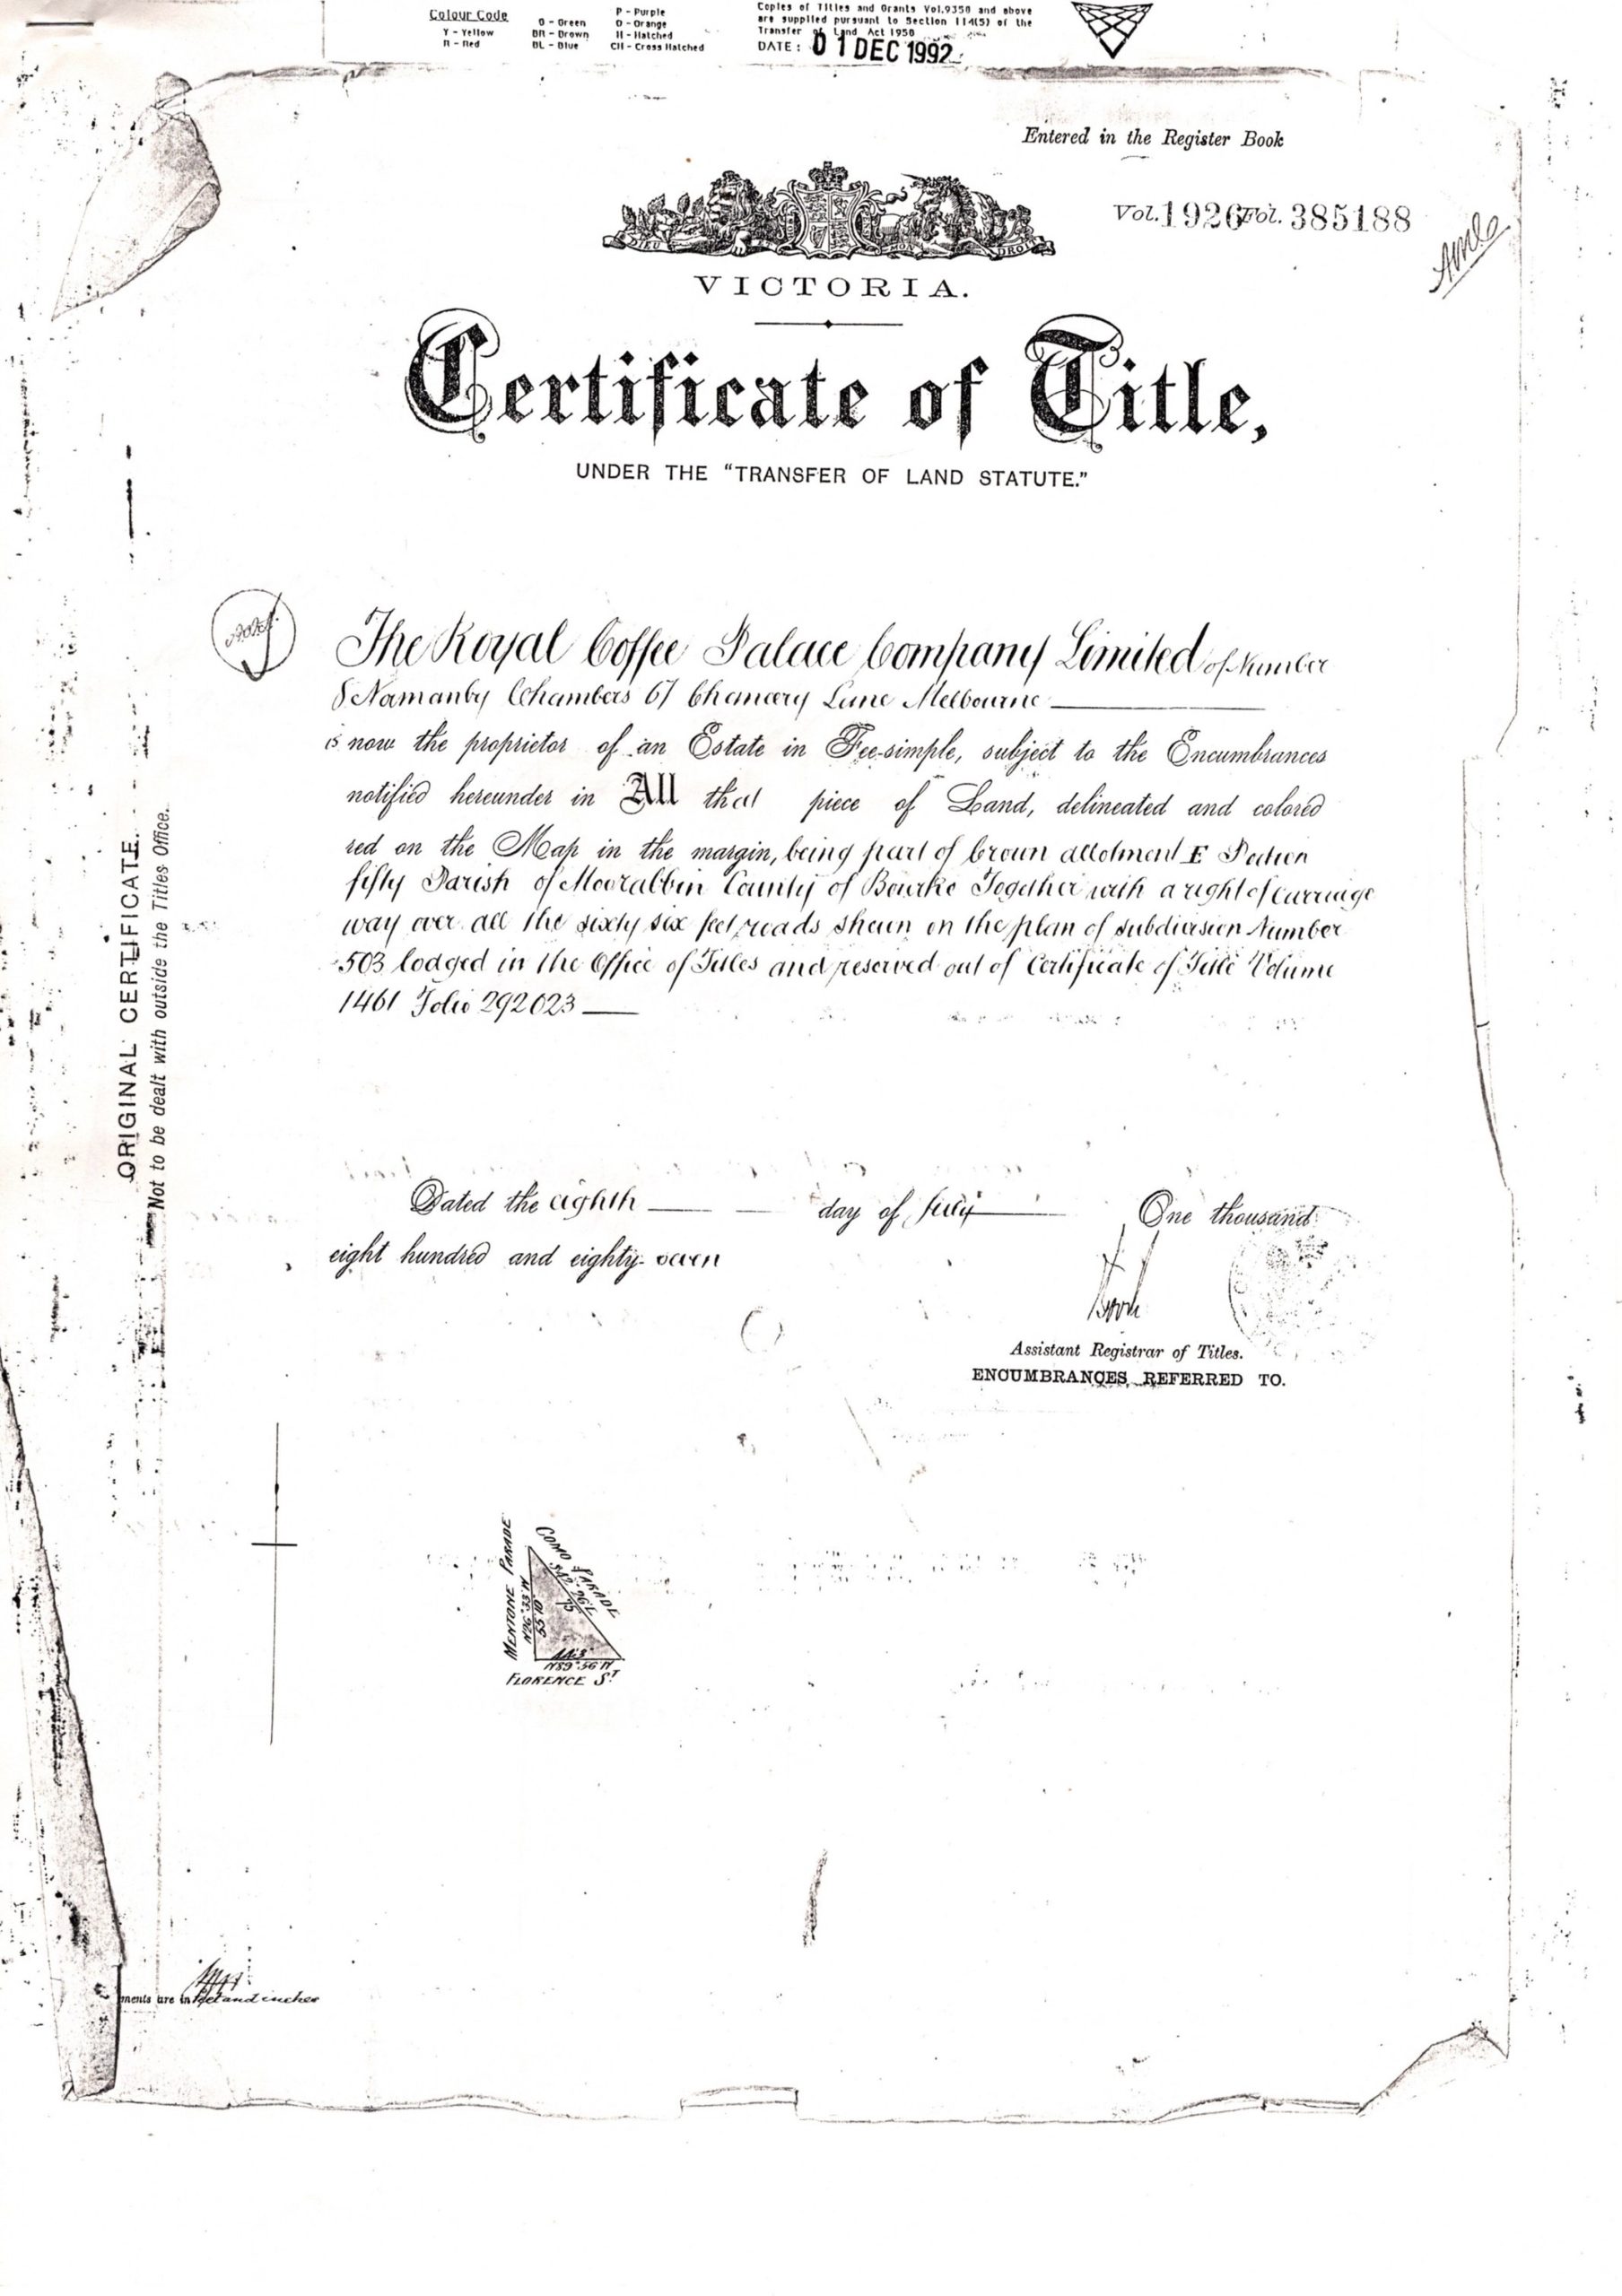 Colour Code
Y - Yellow
R - Red
G - Green
BR - Brown
BL - Blue
P - Purple
O - Orange
H - Hatched
CH - Cross Hatched
Copies of Titles and Grants Vol.9350 and above
are supplied pursuant to Section 114(5) of the
Transfer of Land Act 1958
DATE: 01 DEC 1992
Entered in the Register Book
Vol. 1926 Fol. 385188
DIEU DROIT
VICTORIA.
Certificate of Title,
UNDER THE "TRANSFER OF LAND STATUTE."
The Royal Coffee Palace Company Limited of Number
8 Normanby Chambers 67 Chancery Lane Melbourne
is now the proprietor of an Estate in Fee-simple, subject to the Encumbrances
notified hereunder in All that piece of Land, delineated and colored
red on the Map in the margin, being part of Crown allotment E Portion
fifty Parish of Moorabbin County of Bourke Together with a right of carriage
way over all the sixty six feet roads shewn on the plan of subdivision Number
503 lodged in the Office of Titles and reserved out of Certificate of Title Volume
1461 Folio 292023
ORIGINAL CERTIFICATE.
Not to be dealt with outside the Titles Office.
Dated the eighth day of July One thousand
eight hundred and eighty-seven
Assistant Registrar of Titles.
ENCUMBRANCES REFERRED TO.
MENTONE PARADE
N26°33'W
55'10
COMO PARADE
N89°56'W
FLORENCE ST
ments are in feet and inches